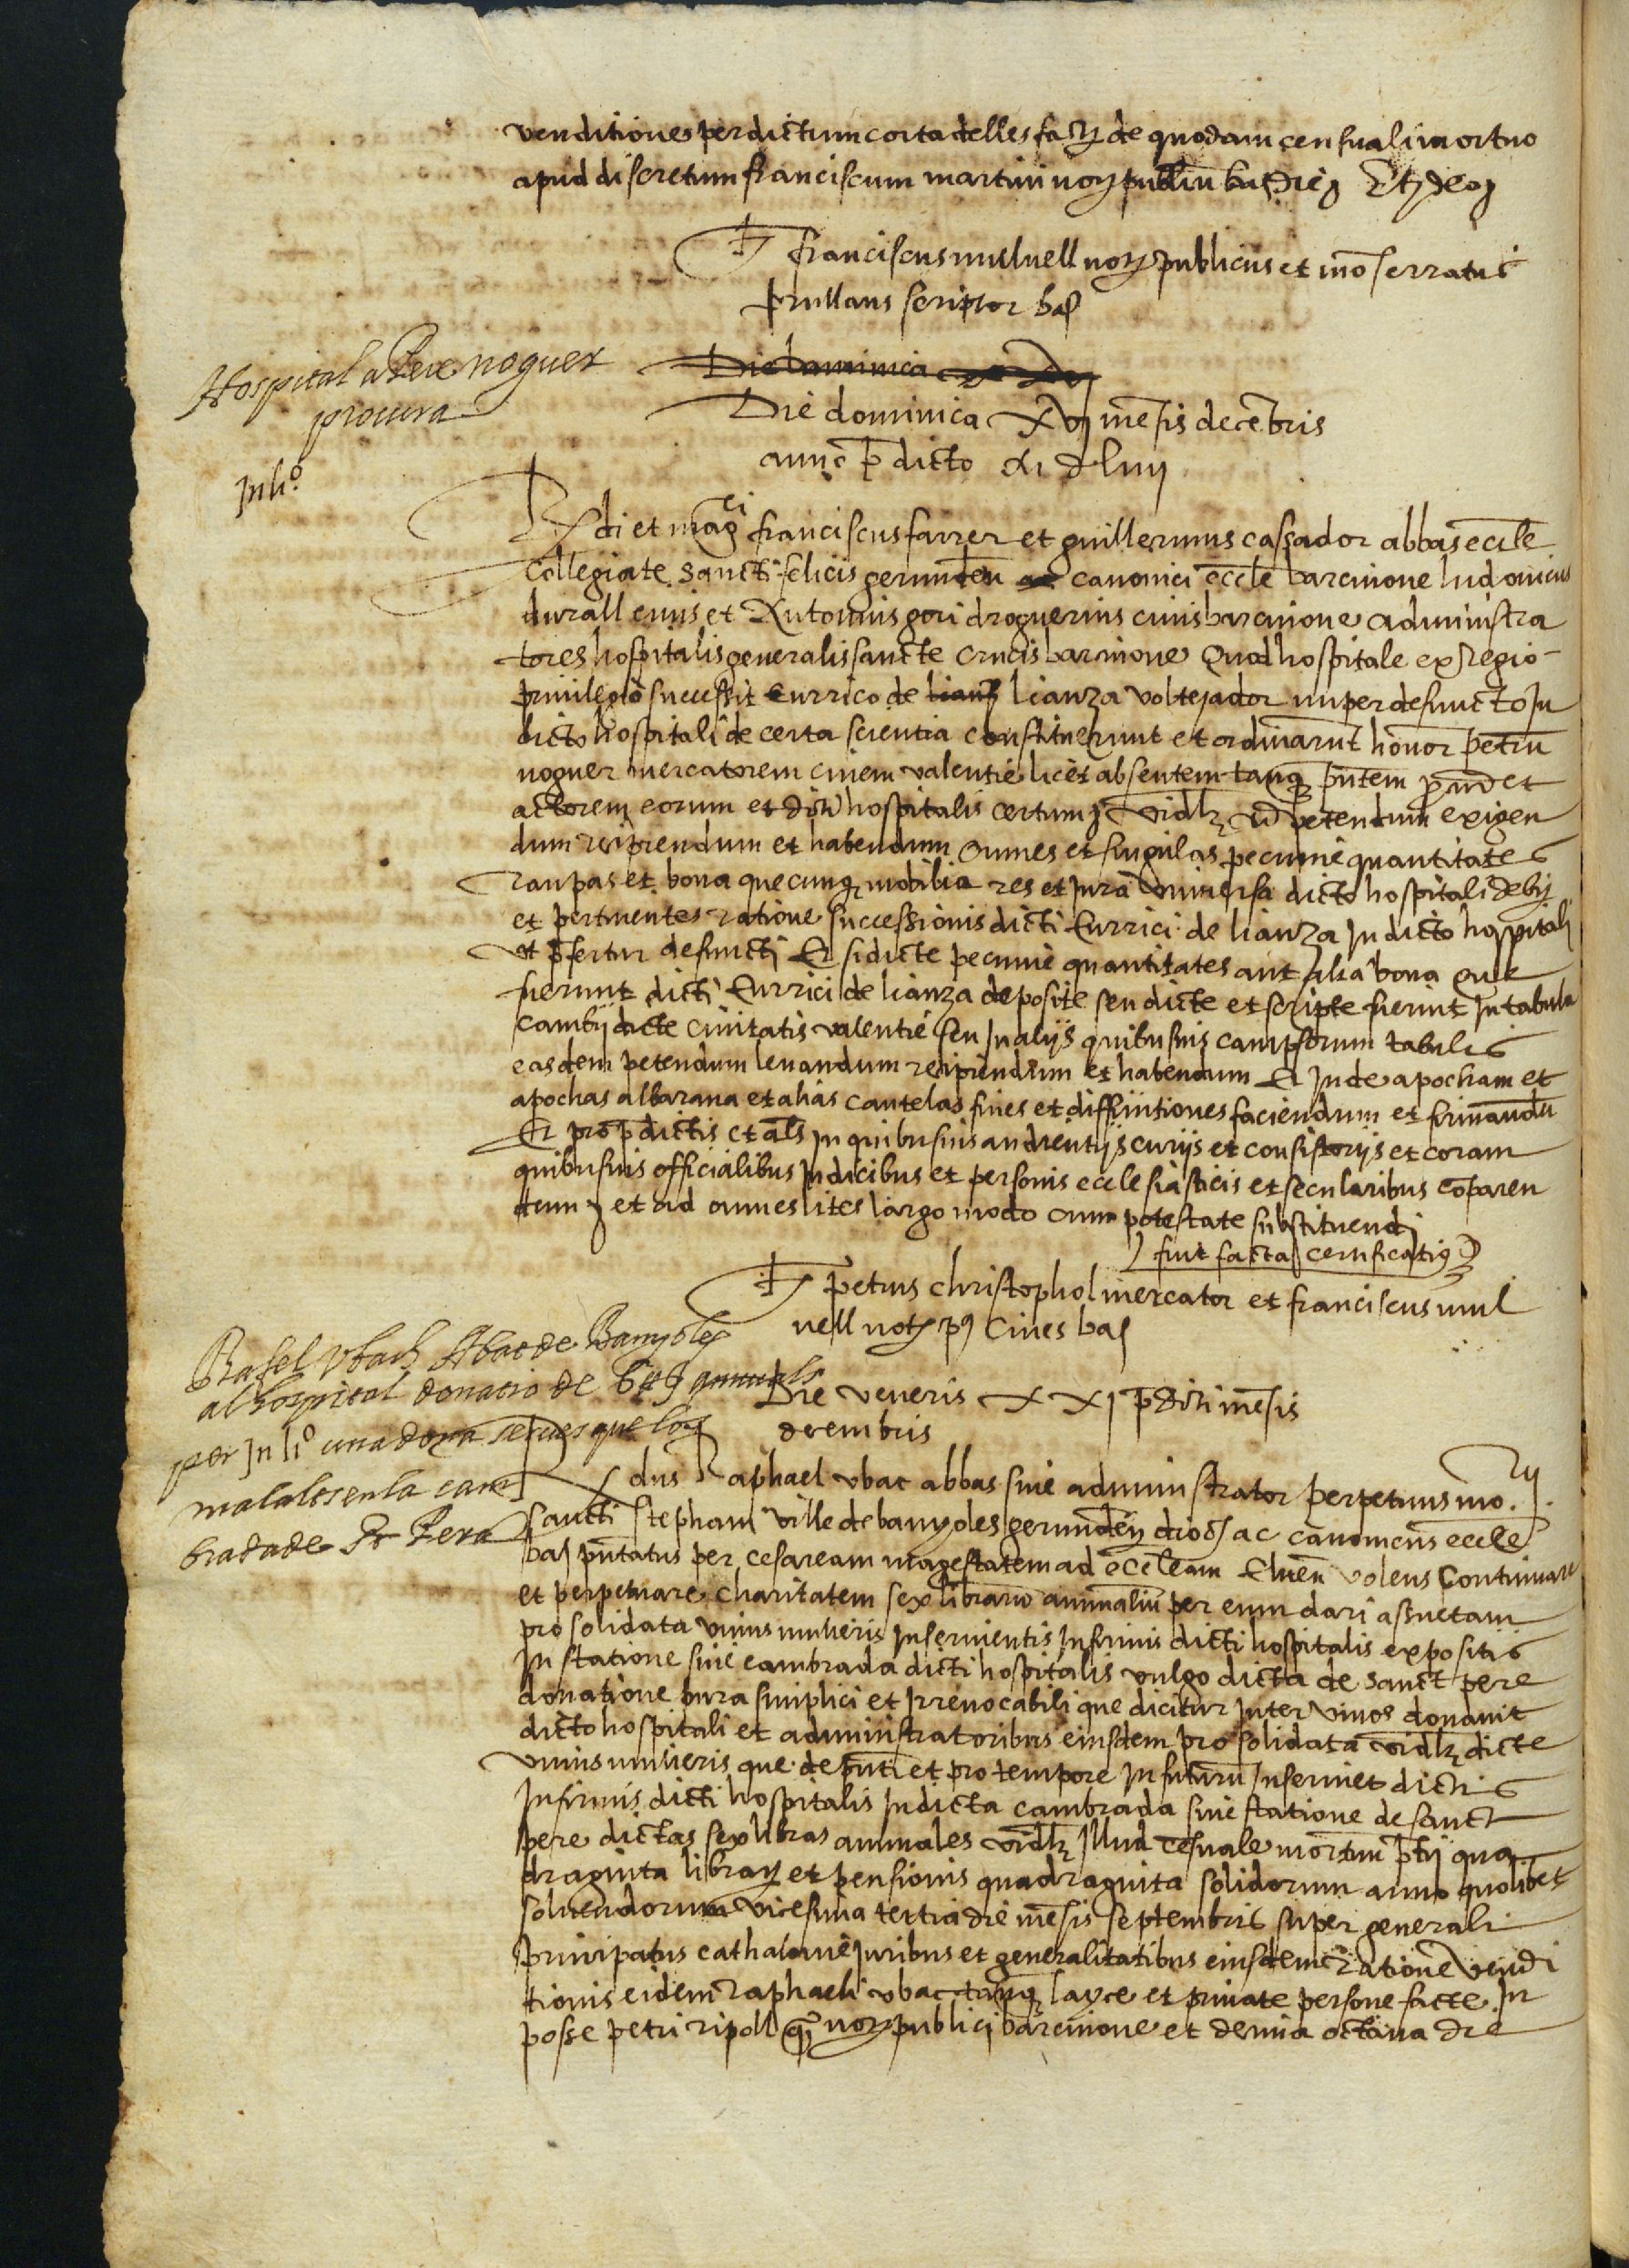 venditiones per dictum cortadelles fact de quodam censuali mortuo
apud discretum franciscum martini not publicu
Ts franciscus mulnell not publicus et mo serratus
prullans scriptor bar
Hospital a Pere noguer
procura
Die dominica
Die dominica xvj mesis decebris
anno p dicto M d lviij
In li.º
Rdi et magci franciscus farrer et guillermus cassador abbas eccle
Collegiate sancti felicis gerunden ac canonici eccle barcinone ludovicus
durall civis et Antonius gori droguerius civis barcinone administra
tores hospitalis generalis sancte crucis barcinone Quod hospitale ex regio
privilegio successit Enrrico de lianz lianza voltejador nuper defuncto In
dicto hospitali de certa scientia constituerunt et ordinarunt honor petru
noguer mercatorem civem valentie licet absentem tanq pntem et
actorem eorum et dicti hospitalis certum vidlz ad petendum exigen
dum recipiendum et habendum omnes et singulas pecunie quantitates
raupas et bona quecunq mobilia res et Jura universa dicto hospitali debit
et pertinentes ratione successionis dicti Enrrici de lianza In dicto hospitali
ut pfertur defuncti Et si dicte pecunie quantitates aut alia bona que
fuerunt dicti Enrrici de lianza deposite seu dicte et scripte fuerint In tabula
cambij dicte civitatis valentie seu In alijs quibusvis campsorum tabulis
easdem petendum levandum recipiendum et habendum Et Inde apocham et
apochas albarana et alias cautelas fines et diffinitiones faciendum et firmandu
Et pro pdictis et als In quibusvis audientijs curijs et consistorijs et coram
quibusvis officialibus Judicibus et personis ecclesiasticis et secularibus coparen
dum et ad omnes lites largo modo cum potestate substituendi
fuit facta certificatio
Ts petrus christophol mercator et franciscus mul
nell not pus Cives bar
Rafel Ubach Abat de Banyoles
al hospital donatio de 6 ll annuals
per In li.º una dona serves que los
malalts en la cam
brada de St Pere
Die veneris xxj pdicti mesis
decembris
Rdus Raphael ubac abbas sive administrator perpetuus mo.rij
sancti stephani ville de banyoles gerunden dioc ac canonicus eccle
bar pntatus per cesaream magestatem ad eccleam Elnen volens Continuare
et perpetuare charitatem sex librarum annualium per eum dari assuetam
pro solidata unius mulieris Inservientis Infirmis dicti hospitalis expositis
In statione sive cambrada dicti hospitalis vulgo dicta de sanct pere
donatione pura simplici et Irrevocabili que dicitur Inter vivos donavit
dicto hospitali et administratoribus eiusdem pro solidata vidlz dicte
unius mulieris que de pnti et pro tempore In futuru Inserviet dictis
Infirmis dicti hospitalis In dicta cambrada sive statione de sanct
pere dictas sex libras annuales vidlz Illud cesuale mortuu ptij qua
draginta librar et pensionis quadraginta solidorum anno quolibet
solvendorum vicesima tertia die mesis septembris super generali
principatus cathalonie Juribus et generalitatibus eiusdem Ratione vendi
tionis eidem raphaeli ubac tanq layce et private persone facte In
posse petri ripoll q not publici barcinone et decima octava die